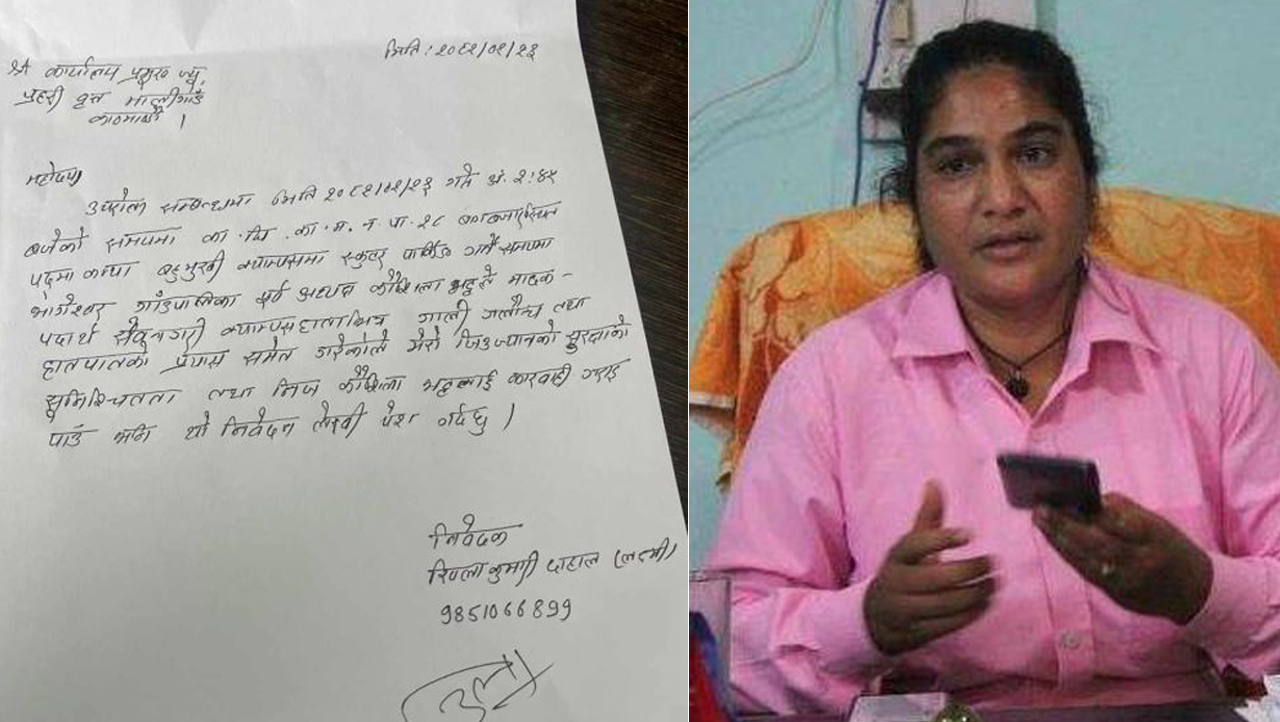 मिति: २०८२/०२/२३
श्री कार्यालय प्रमुख ज्यू,
प्रहरी वृत्त मालीगाउँ
काठमाडौं ।
महोदय,
उपरोक्त सम्बन्धमा मिति २०८२/०२/२३ गते अं. २:४५
बजेको समयमा का.जि. का.म.न.पा. २८ बागबजारस्थित
पद्मकन्या बहुमुखी क्याम्पसमा स्कुटर पार्किङ गर्ने समयमा
भागेश्वर गाउँपालिका पूर्व अध्यक्ष कौशिला भट्टले मादक-
पदार्थ सेवनगरी क्याम्पस हाताभित्र गाली गलौच तथा
हातपातको प्रयास समेत गरेकोले मेरो जिउज्यानको सुरक्षाको
सुनिश्चितता तथा निज कौशिला भट्टलाई कारवाही गराई
पाउँ भनि यो निवेदन लेखी पेश गर्दछु ।
निवेदक
कुमारी दाहाल (लक्ष्मी)
9851066899